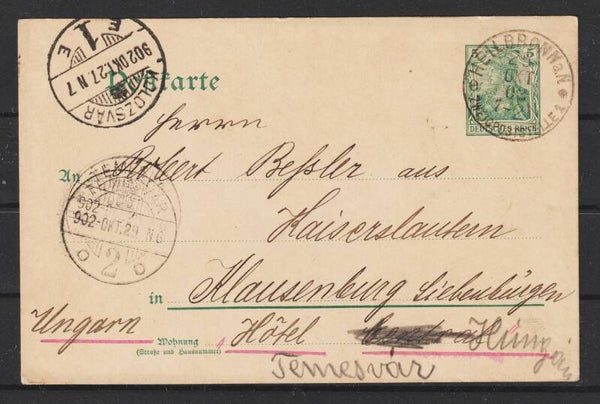 KOLOZSVÁR
902 OKT. 27. N 7
1
E E
Postkarte
HEILBRONN a.N
25
OKT
02
DEUTSCHES REICH
Herrn
An Robert Beßler aus
Kaiserslautern
TEMESVÁR
902-OKT. 29 N6
2
in Klausenburg Siebenbürgen
Ungarn Hôtel
Wohnung
(Straße und Hausnummer)
Temesvár